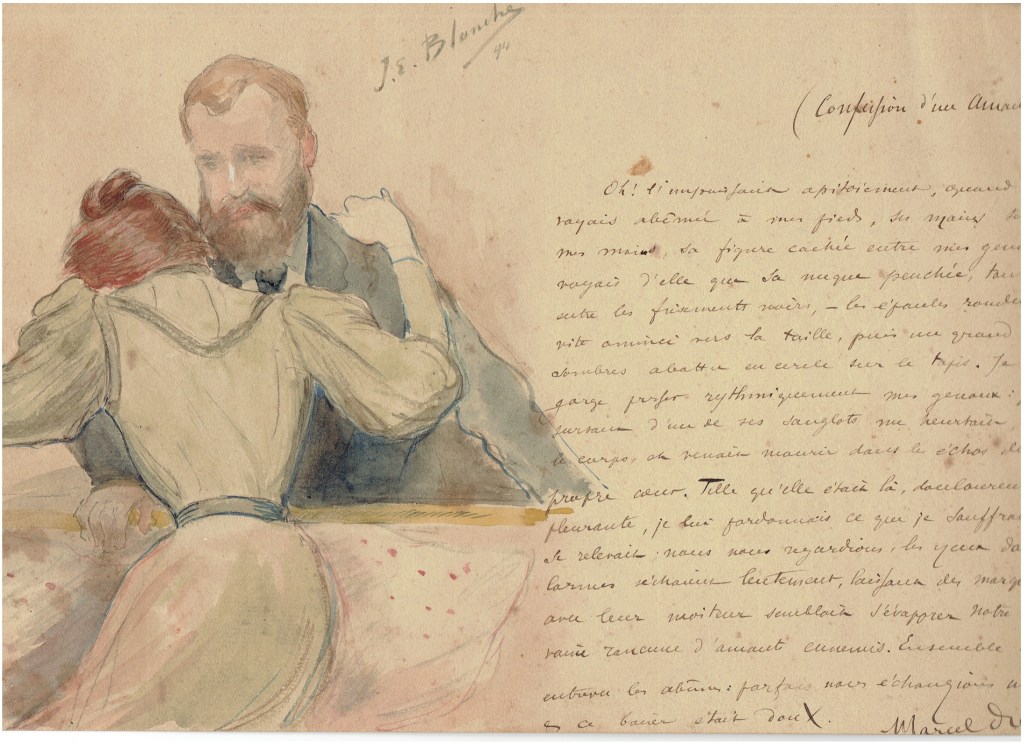 J. E. Blanche
94
(Confession d'un Aman
Oh! apitoiement, quand
voyais abîmée à mes pieds, ses mains
mes mains, sa figure cachée entre mes geno
voyais d'elle que sa nuque penchée,
entre les frisements noirs, – les épaules ronde
vite aminci vers la taille, puis un grand
sombres abattu en cercle sur le tapis. Sa
gorge presser rythmiquement mes genoux :
d'un de ses sanglots me heurtait,
le corps, et venait mourir dans les échos de
propre cœur. Telle qu'elle était là, douloureu
pleurante, je lui pardonnais ce que je souffra
se relevait ; nous nous regardions, les yeux da
larmes séchaient lentement, laissant des marqu
avec leur moiteur semblait s'évaporer notre
vaine rancune d'amants ennemis. Ensemble
entrevu les abîmes : parfois nous échangions u
& ce baiser était doux.
Marcel